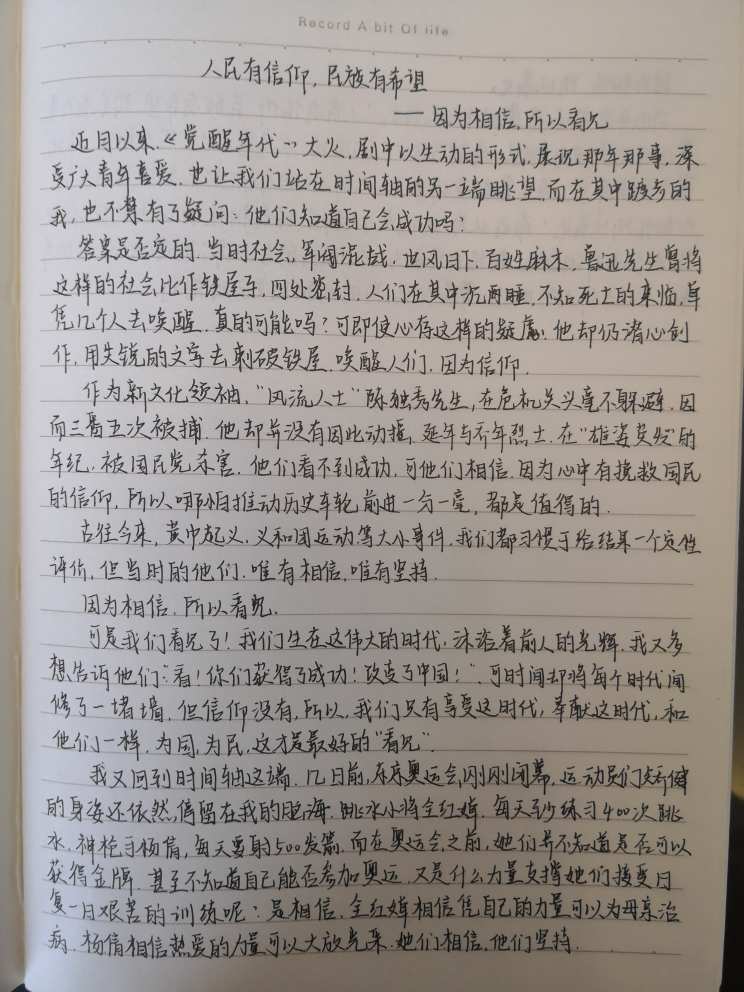 Record A bit Of life
人民有信仰,民族有希望
——因为相信,所以看见
近日以来,《觉醒年代》大火,剧中以生动的形式,展现那年那事,深
受广大青年喜爱.也让我们站在时间轴的另一端眺望.而在其中踱步的
我,也不禁有了疑问:他们知道自己会成功吗?
答案是否定的.当时社会,军阀混战,世风日下,百姓麻木.鲁迅先生曾将
这样的社会比作铁屋子,四处密封,人们在其中沉两睡,不知死亡的来临,单
凭几个人去唤醒,真的可能吗?可即使心存这样的疑虑,他却仍潜心创
作,用尖锐的文字去刺破铁屋.唤醒人们,因为信仰.
作为新文化领袖,“风流人士”陈独秀先生,在危机关头毫不躲避.因
而三番五次被捕.他却并没有因此动摇,延年与乔年烈士.在“雄姿英发”的
年纪.被国民党杀害,他们看不到成功,可他们相信.因为心中有挽救国民
的信仰,所以哪怕推动历史车轮前进一分一毫,都是值得的.
古往今来,黄巾起义,义和团运动等大小事件,我们都习惯于给结果一个定性
评价,但当时的他们.唯有相信,唯有坚持.
因为相信.所以看见.
可是我们看见了!我们生在这伟大的时代,沐浴着前人的光辉.我又多
想告诉他们:“看!你们获得了成功!改变了中国!”.可时间却将每个时代间
修了一堵墙,但信仰没有,所以,我们只有享受这时代,奉献这时代,和
他们一样,为国,为民,这才是最好的“看见”.
我又回到时间轴这端.几日前,东京奥运会刚刚闭幕,运动员们矫健
的身姿还依然停留在我的脑海.跳水小将全红婵.每天至少练习400次跳
水.神枪手杨倩,每天要射500发箭.而在奥运会之前,她们并不知道是否可以
获得金牌.甚至不知道自己能否参加奥运.又是什么力量支撑她们接受日
复一日艰苦的训练呢?是相信.全红婵相信凭自己的力量可以为母亲治
病.杨倩相信热爱的力量可以大放光采.她们相信,他们坚持.